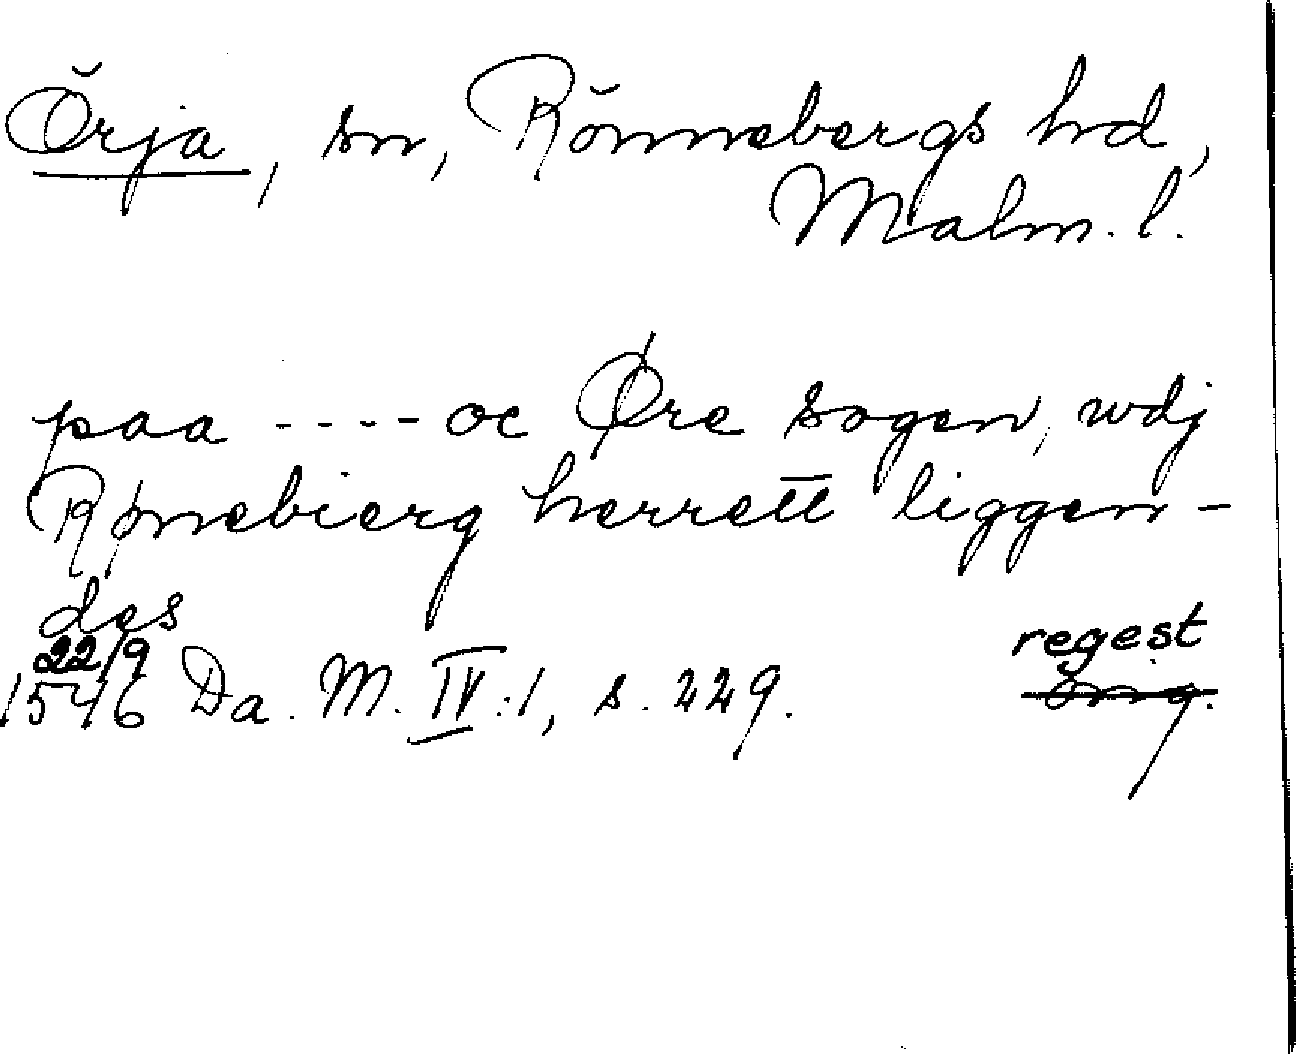 Örja, sn, Rönnebergs hd,
Malm. l.
paa ---- oc Øre sogen, wdj
Rønebierg herrett liggen-
des
22/9
1546 Da. M. IV:1, s. 229.
regest